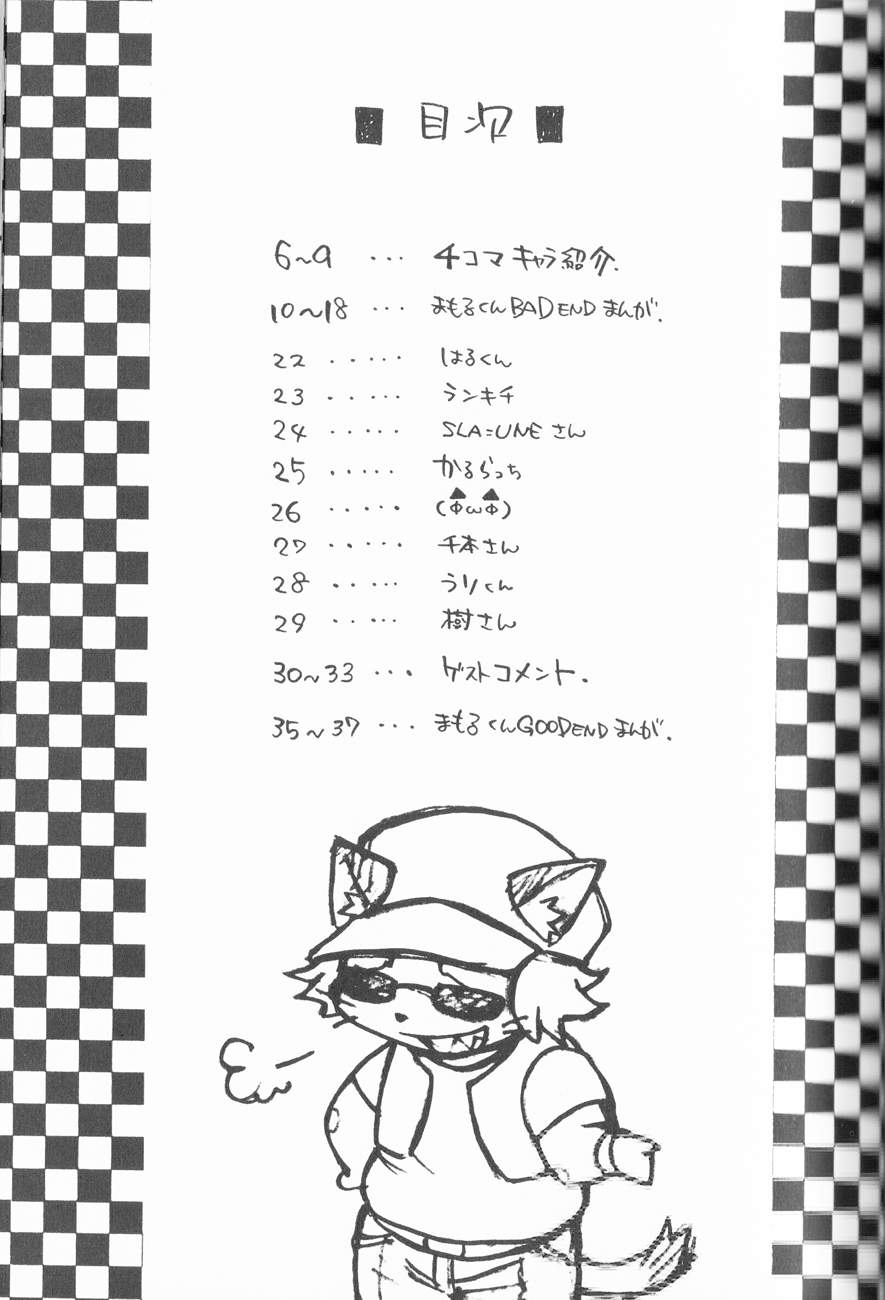 ■ 目次 ■
6～9 ・・・ 4コマ キャラ紹介.
10～18 ・・・ まもるくんBAD END まんが.
22 ・・・・・ はるくん
23 ・・・・・ ランキチ
24 ・・・・・ SLA=UNE さん
25 ・・・・・ かるらっち
26 ・・・・・ (ΦωΦ)
27 ・・・・・ 千本さん
28 ・・・・・ うりくん
29 ・・・・・ 樹さん
30～33 ・・・ ゲストコメント.
35～37 ・・・ まもるくんGOODEND まんが.